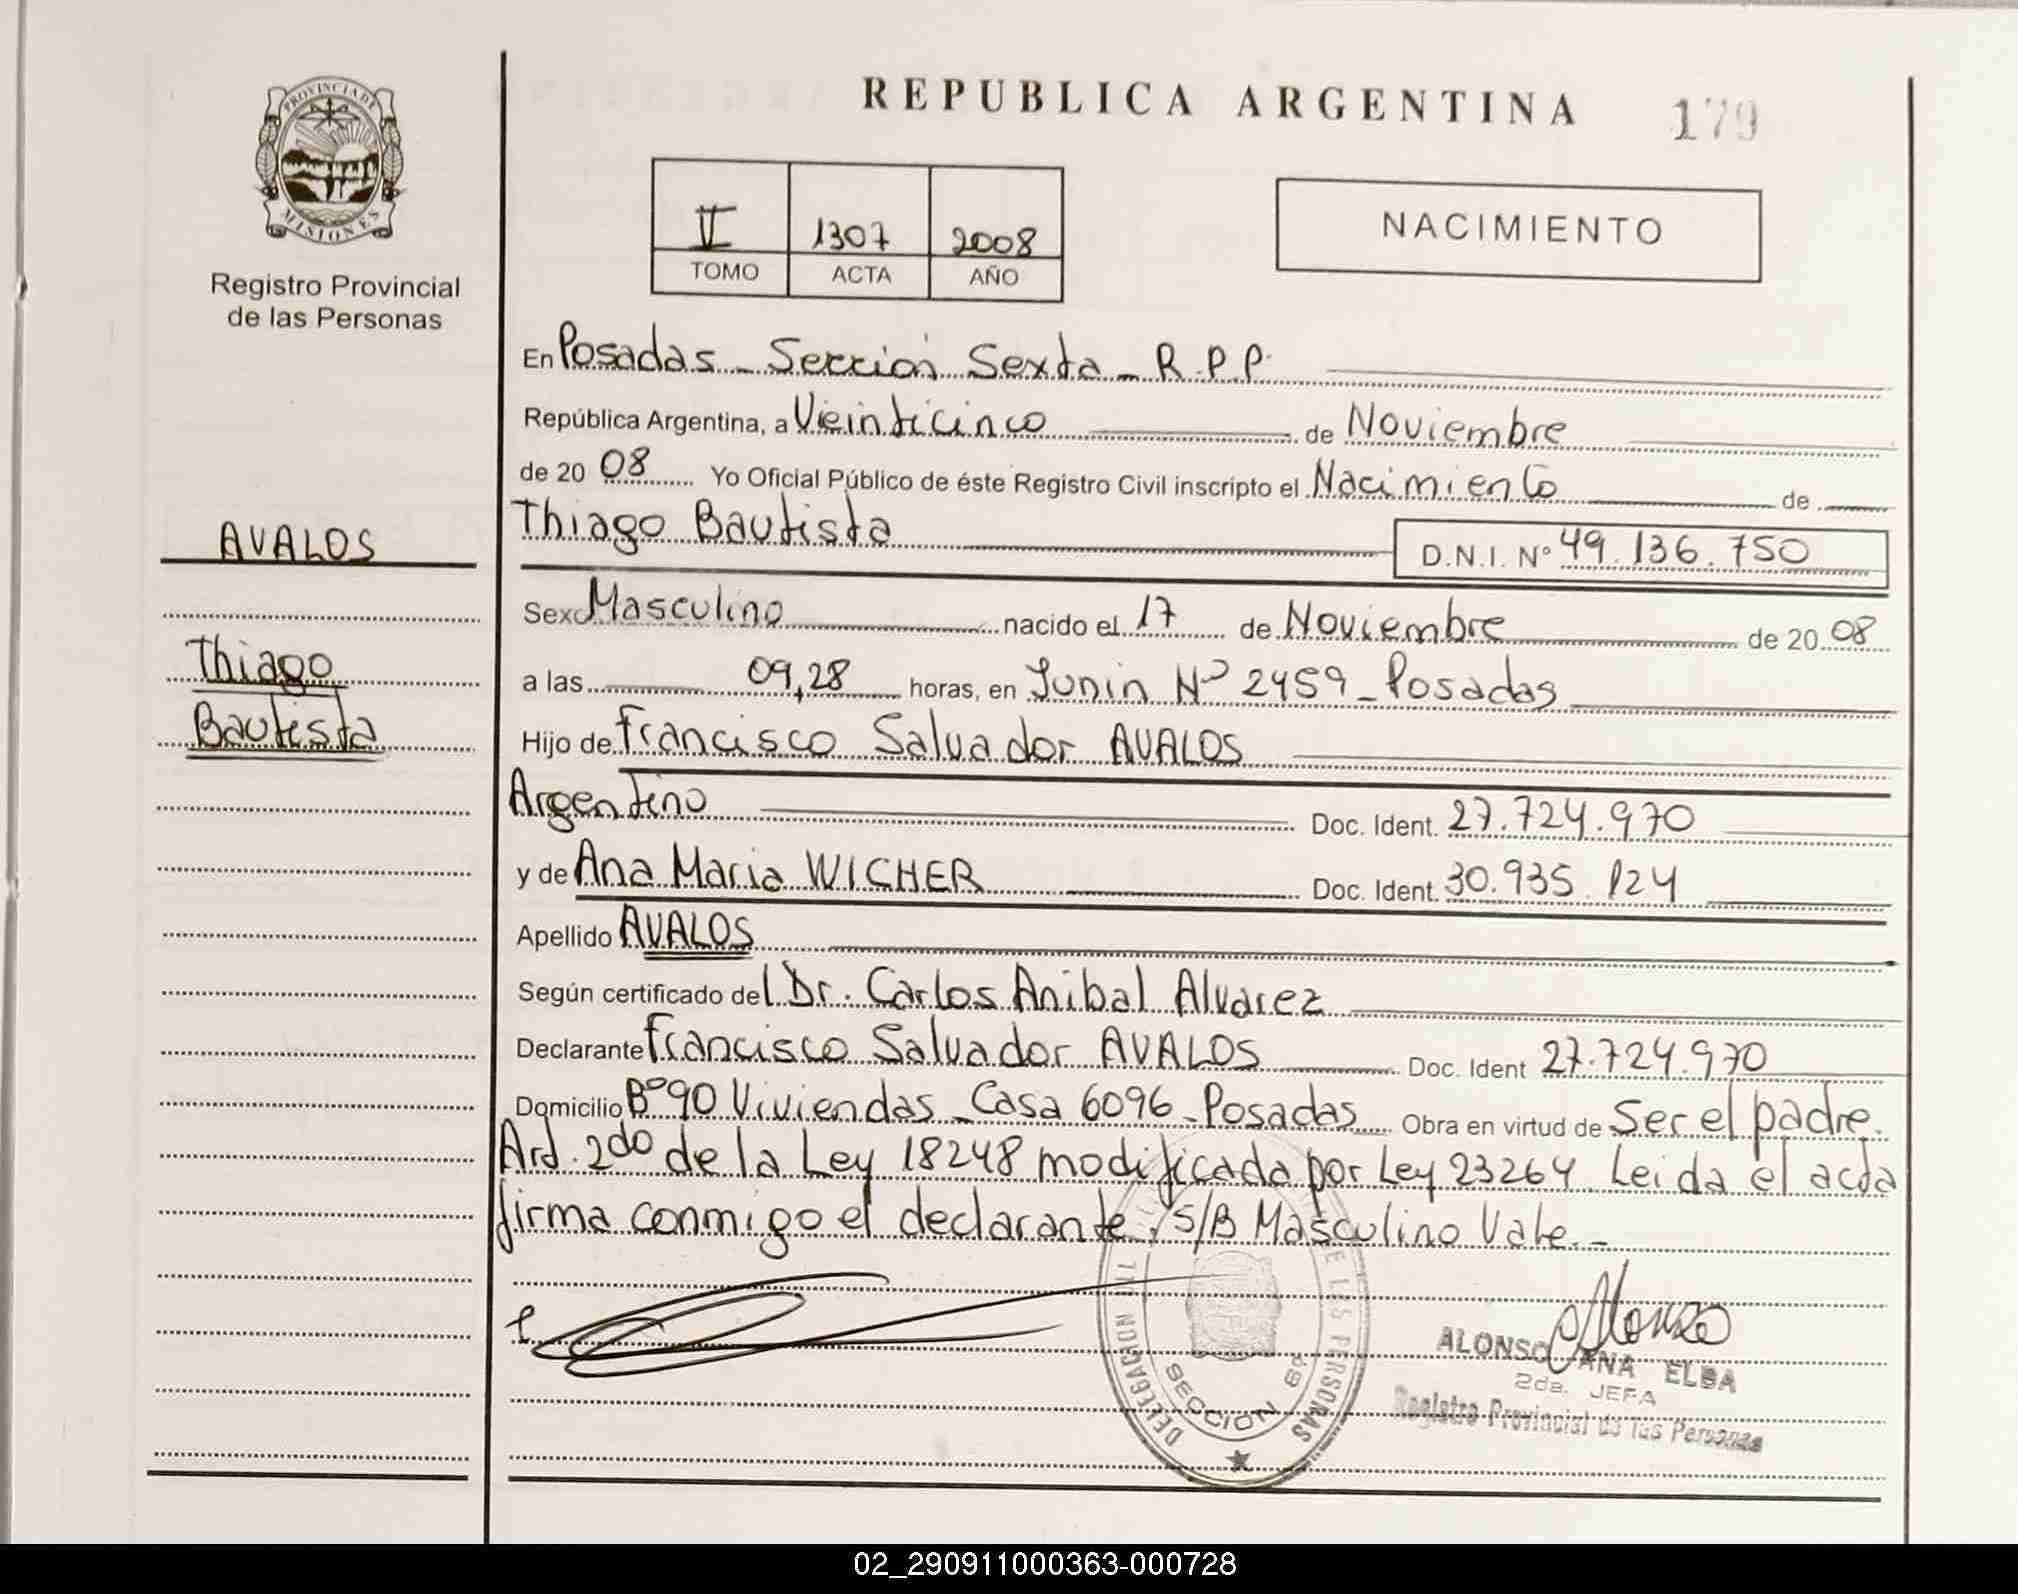 REPUBLICA ARGENTINA
179
PROVINCIA DE
MISIONES
Registro Provincial
de las Personas
II 1307 2008
TOMO ACTA AÑO
NACIMIENTO
En Posadas - Sección Sexta - R.P.P.
República Argentina, a Veinticinco de Noviembre
de 20 08 Yo Oficial Público de éste Registro Civil inscripto el Nacimiento de
Thiago Bautista D.N.I. Nº 49.136.750
AVALOS
Thiago
Bautista
Sexo Masculino nacido el 17 de Noviembre de 20 08
a las 09,28 horas, en Junin Nº 2459 - Posadas
Hijo de Francisco Salvador AVALOS
Argentino Doc. Ident. 27.724.970
y de Ana Maria WICHER Doc. Ident. 30.935.124
Apellido AVALOS
Según certificado del Dr. Carlos Anibal Alvarez
Declarante Francisco Salvador AVALOS Doc. Ident 27.724.970
Domicilio Bº 90 Viviendas - Casa 6096 - Posadas Obra en virtud de Ser el padre.
Art. 2do de la Ley 18248 modificada por Ley 23264 Leida el acta
firma conmigo el declarante, S/B Masculino Vale.-
DELEGACION
DE LAS PERSONAS
SECCION 6ª
Alonzo
ALONSO ANA ELBA
2da. JEFA
Registro Provincial de las Personas
02_290911000363-000728